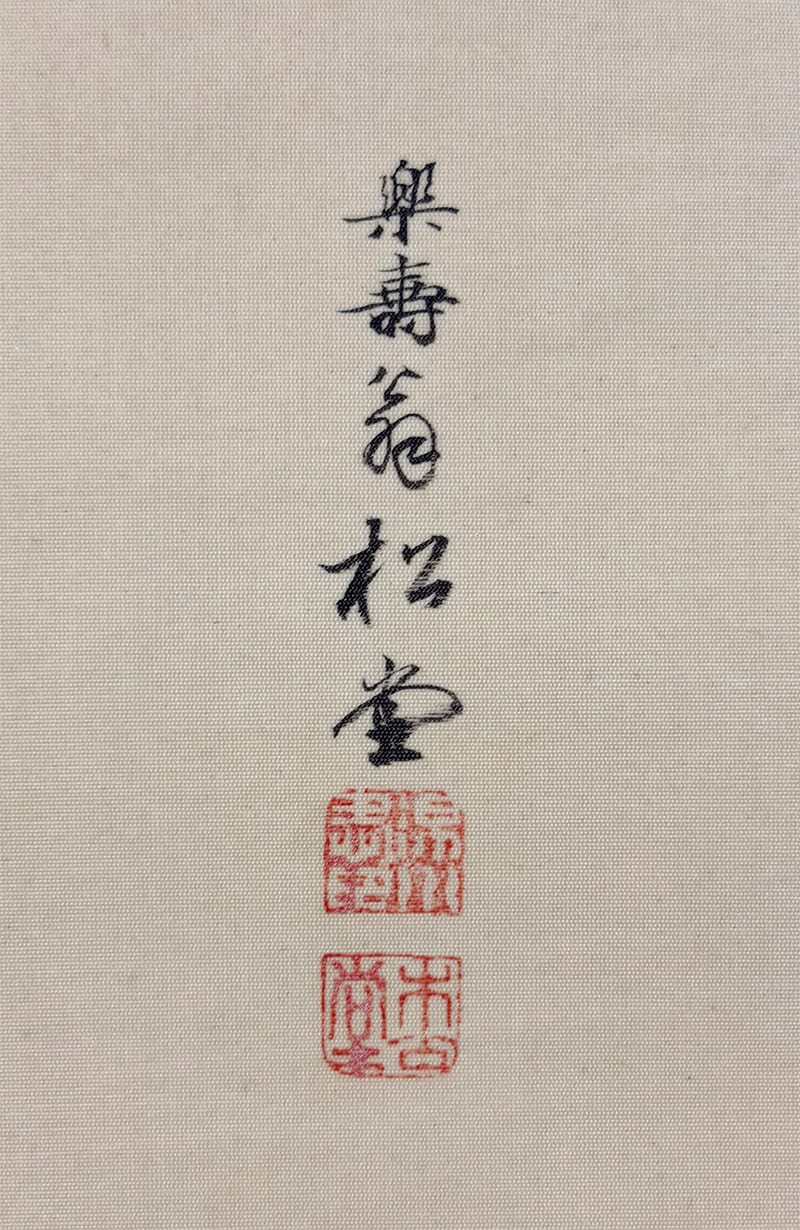 樂壽翁松堂
松堂